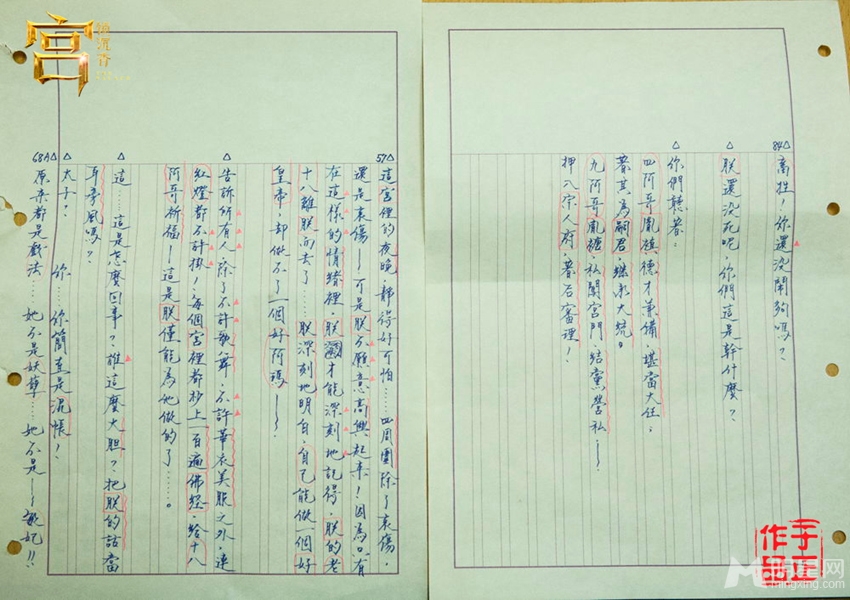 宫
锁沉香
84△
高牲！你還没鬧夠嗎？
△
朕還没死呢，你們這是幹什麼？
△
你們聽着：
四阿哥胤禛德才兼備，堪當大任，
着其為嗣君，继承大统。
九阿哥胤禟，私闖宮門，结黨營私～
押入宗人府，着后審理！
57△
這宮裡的夜晚，靜得好可怕……四周圍除了哀傷，
還是哀傷——可是朕不願意高興起来！因為只有
在這樣的情緒裡，朕才能深刻地記得，朕的老
十八離朕而去了……朕深刻地明白，自己能做一個好
皇帝，却做不了一個好阿瑪——～
△
告訴所有人，除了不許歌舞，不許華衣美服之外，連
紅燈都不許掛！每個宮裡都抄上一百遍佛經，給十八
阿哥祈福——這是朕僅能為他做的了……。
△
這……這是怎麼回事？誰這麼大胆？把朕的話當
耳旁風嗎？
△
太子？　你……你簡直是混帳！
68A△
原来都是戲法……她不是妖孽……她不是——敏妃！！
于正
作品
明星网
mingxing.com